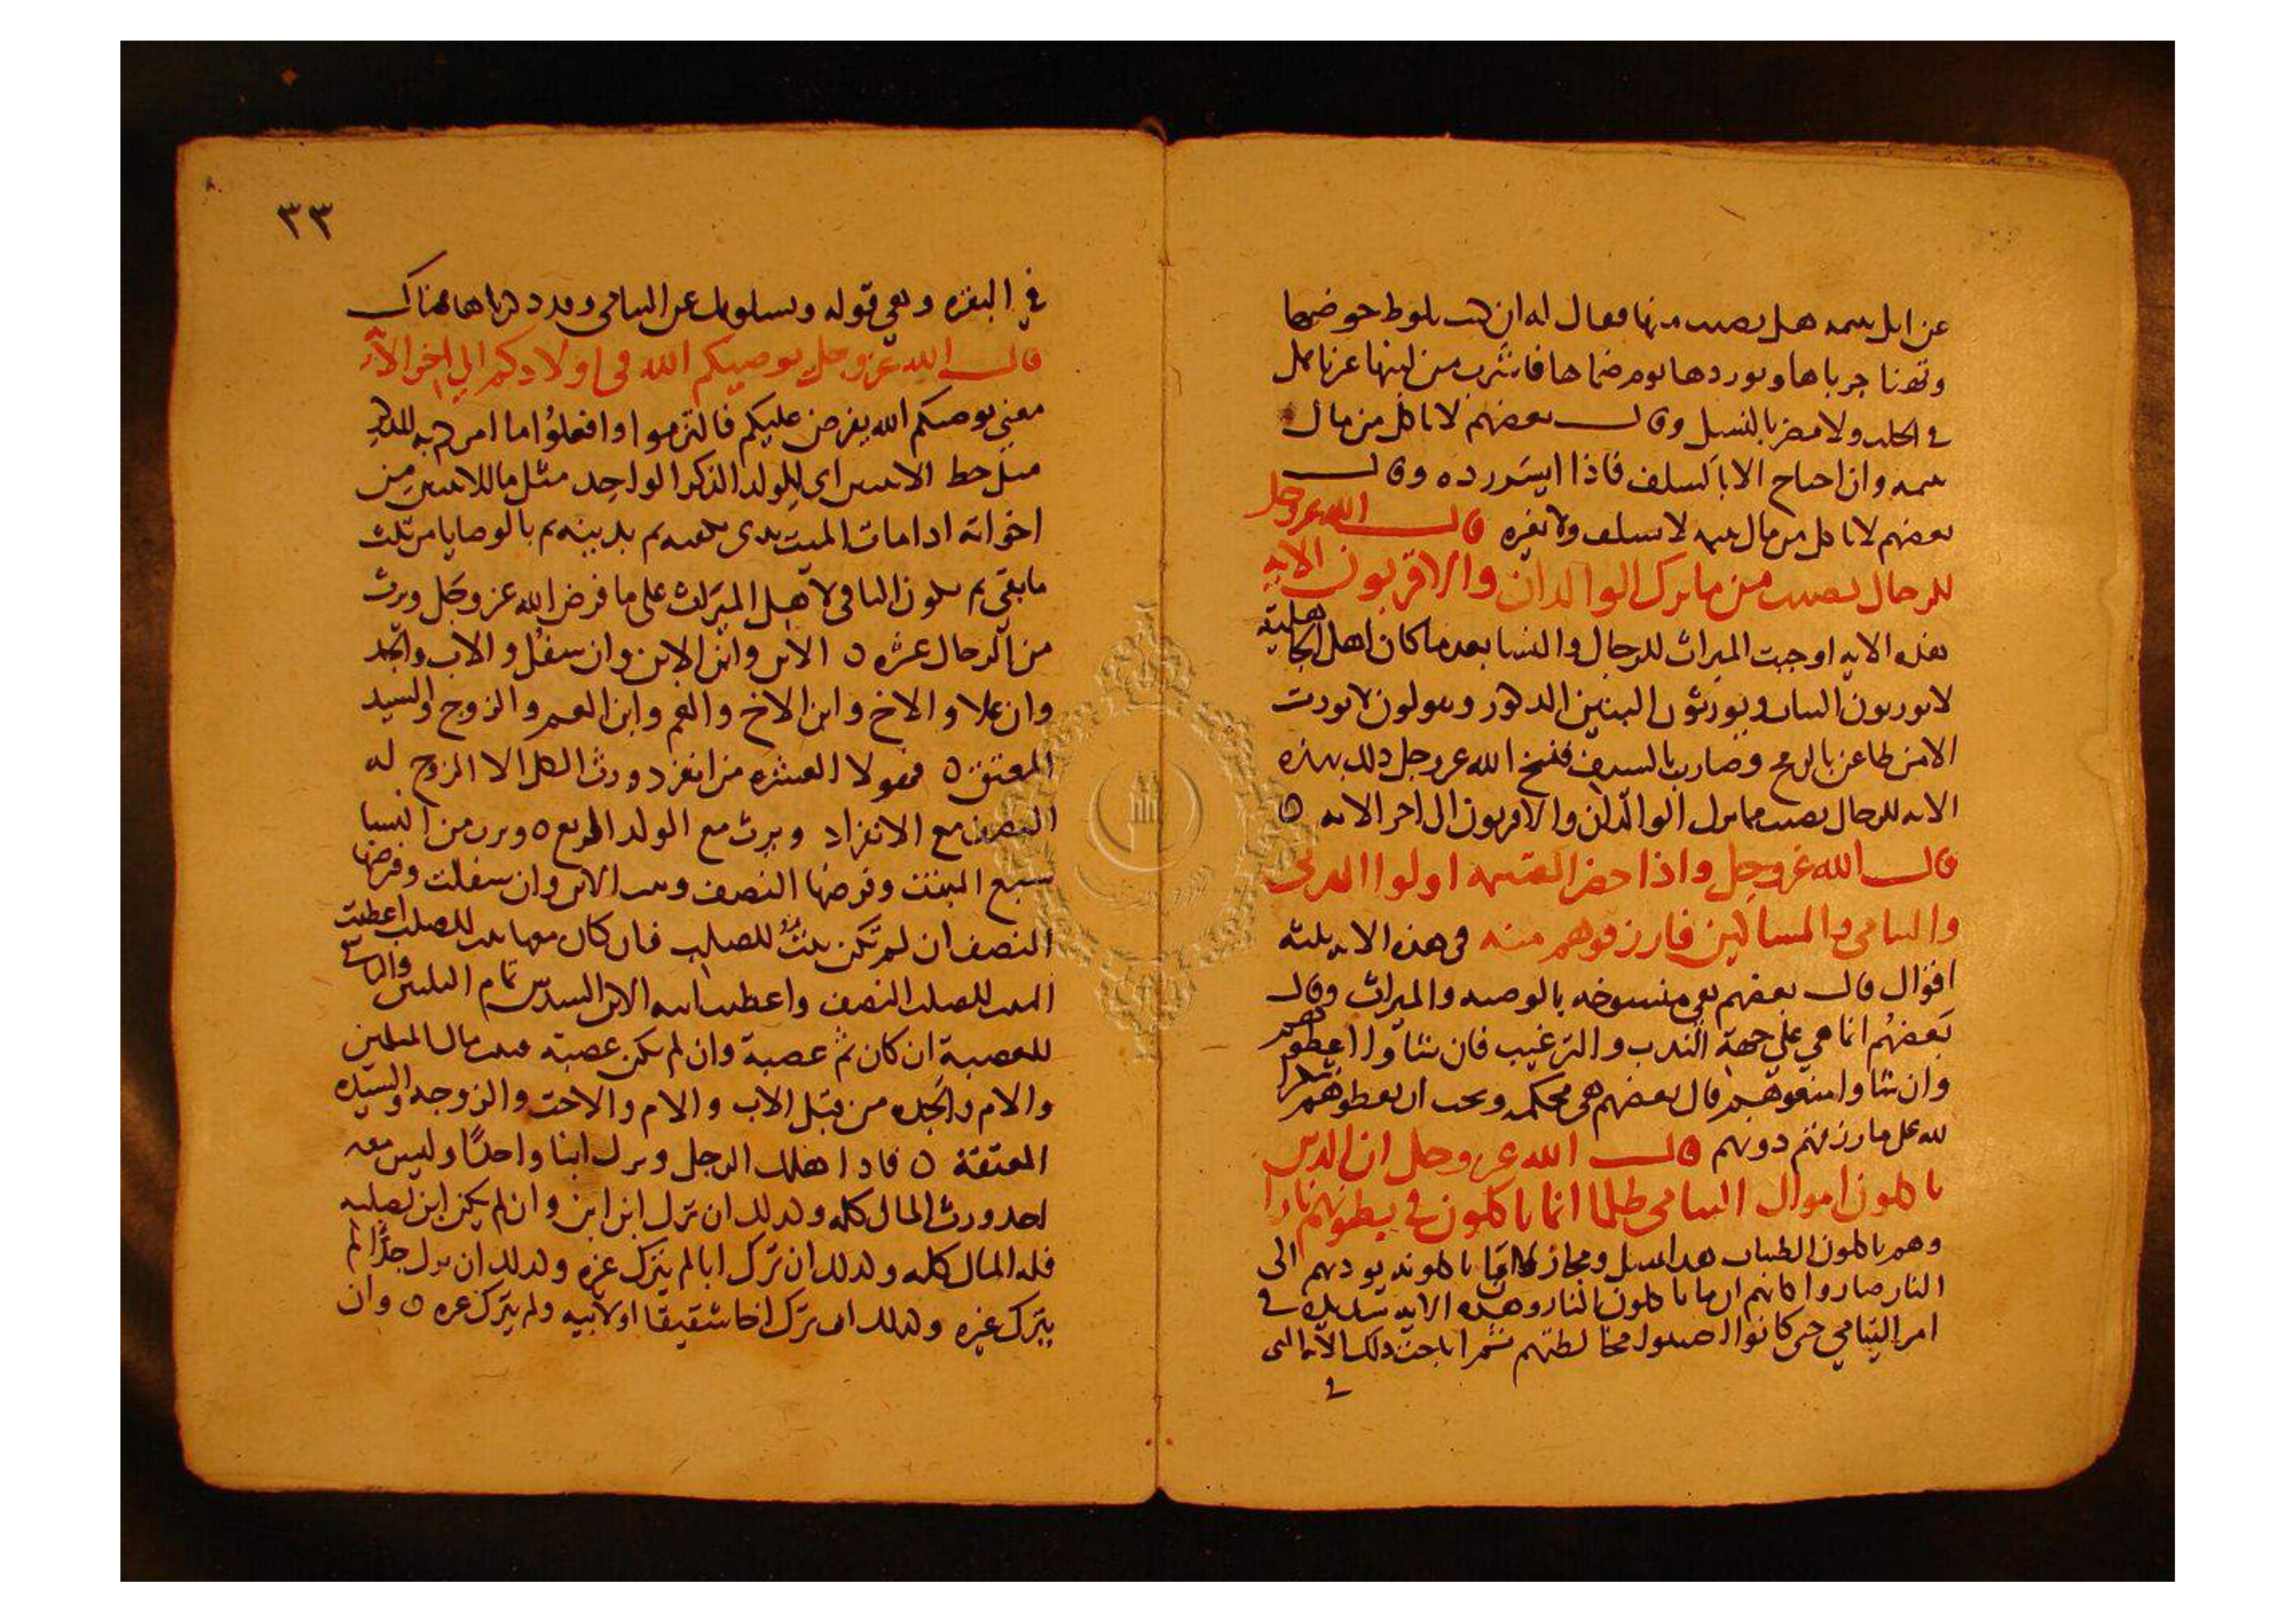 عن ابل يتيمه هل يصيب منها فقال له ان كنت تلوط حوضها
وتهنا جرباها وتوردها يوم ضماها فاشرب من لبنها غير ناهك
في الحلب ولا مضر بالنسل وقال بعضهم لا ياكل من مال
يتيمه وان احتاج الا بالسلف فاذا ايسر رده وقال
بعضهم لا ياكل من مال يتيمه لا بسلف ولا بغيره قال الله عز وجل
للرجال نصيب من ما ترك الوالدان والاقربون الايه
هذه الايه اوجبت الميراث للرجال والنسا بعد ما كان اهل الجاهلية
لا يورثون البنات ويورثون البنين الذكور ويقولون لا يورث
الا من طاعن بالرمح وضارب بالسيف فنسخ الله عز وجل ذلك بهذه
الايه للرجال نصيب مما ترك الوالدان والاقربون الى اخر الايه ه
قال الله عز وجل واذا حضر القسمه اولوا القربى
واليتامى والمساكين فارزقوهم منه في هذه الايه ثلثه
اقوال قال بعضهم هي منسوخه بالوصيه والميراث وقال
بعضهم انما هي على جهة الندب والترغيب فان شاوا اعطوهم
وان شاوا منعوهم قال بعضهم هي محكمه ويجب ان يعطوهم شكرا
لله على ما رزقهم دونهم قال الله عز وجل ان الذين
ياكلون اموال اليتامى ظلما انما ياكلون في بطونهم نارا
وهم ياكلون الطيبات هذا تمثيل ومجاز لما ياكلونه يوديهم الى
النار صاروا كانهم انما ياكلون النار وهذه الايه شديده في
امر اليتامى حتى كانوا مخالطتهم ثم اباحت ذلك الايه التي
في
٣٣
في البقره وهي قوله ويسلونك عن اليتامى وقد ذكرناها هناك
قال الله عز وجل يوصيكم الله في اولادكم الى اخر الايه
معنى يوصيكم الله يفرض عليكم فالتزموا وافعلوا ما امركم به للذكر
مثل حظ الانثيين اي للولد الذكر الواحد مثل ما للانثيين من
اخواته اذا مات الميت بدي بكفنه ثم بدينه ثم بالوصايا من ثلث
ما بقي ثم يكون الباقي لاهل الميراث على ما فرض الله عز وجل ويرث
من الرجال عشره ه الابن وابن الابن وان سفل والاب والجد
وان علا والاخ وابن الاخ والعم وابن العم والزوج والسيد
المعتق ه فهولا العشره من انفرد ورث الكل الا الزوج له
النصف مع الانفراد ويرث مع الولد الربع ه ويرث من النسا
سبع البنت وفرضها النصف وبنت الابن وان سفلت وفرضها
النصف ان لم تكن بنت للصلب فان كان معها بنت للصلب اعطيت
البنت للصلب النصف واعطيت ابنه الابن السدس تمام الثلثين والباقي
للعصبة ان كان ثم عصبة وان لم يكن عصبة فبيت مال المسلمين
والام والجده من قبل الاب والام والاخت والزوجه والسيده
المعتقة ه فاذا هلك الرجل وترك ابنا واحدا وليس معه
احد ورث المال كله وكذلك ان ترك ابن ابن وان لم يكن ابن لصلبه
فله المال كله وكذلك ان ترك ابا لم يترك غيره وكذلك ان ترك جدا لم
يترك غيره وكذلك ان ترك اخا شقيقا او لابيه ولم يترك غيره ه وان